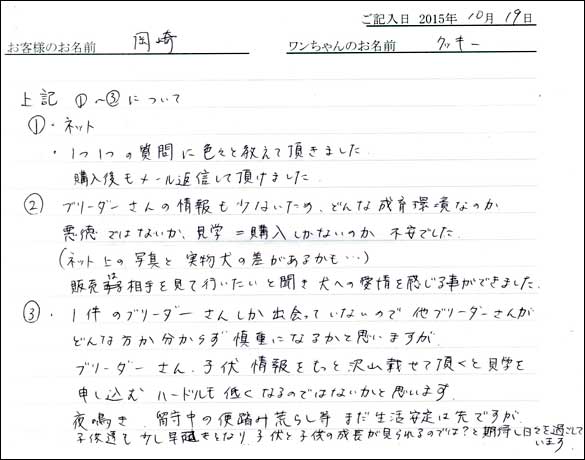 ご記入日 2015年 10月 19日
お客様のお名前 岡崎 ワンちゃんのお名前 クッキー
上記 ①~③について
①・ネット
・1つ1つの質問に色々と教えて頂きました
購入後もメール返信して頂けました
② ブリーダーさんの情報も少ないため、どんな成育環境なのか
悪徳ではないか、見学=購入しかないのか 不安でした
(ネット上の写真と実物犬の差があるかも…)
販売する相手を見て行いたいと聞き犬への愛情を感じる事ができました.
③・1件のブリーダーさんしか出会っていないので他ブリーダーさんが
どんな方か分からず慎重になるかと思いますが
ブリーダーさん、子犬情報をもっと沢山載せて頂くと見学を
申し込むハードルも低くなるのではないかと思います
夜鳴き、留守中の便踏み荒らし等 まだ生活安定は先ですが
子供達も少し早起きとなり、子犬と子供の成長が見られるのでは?と期待し日々を過ごして
います